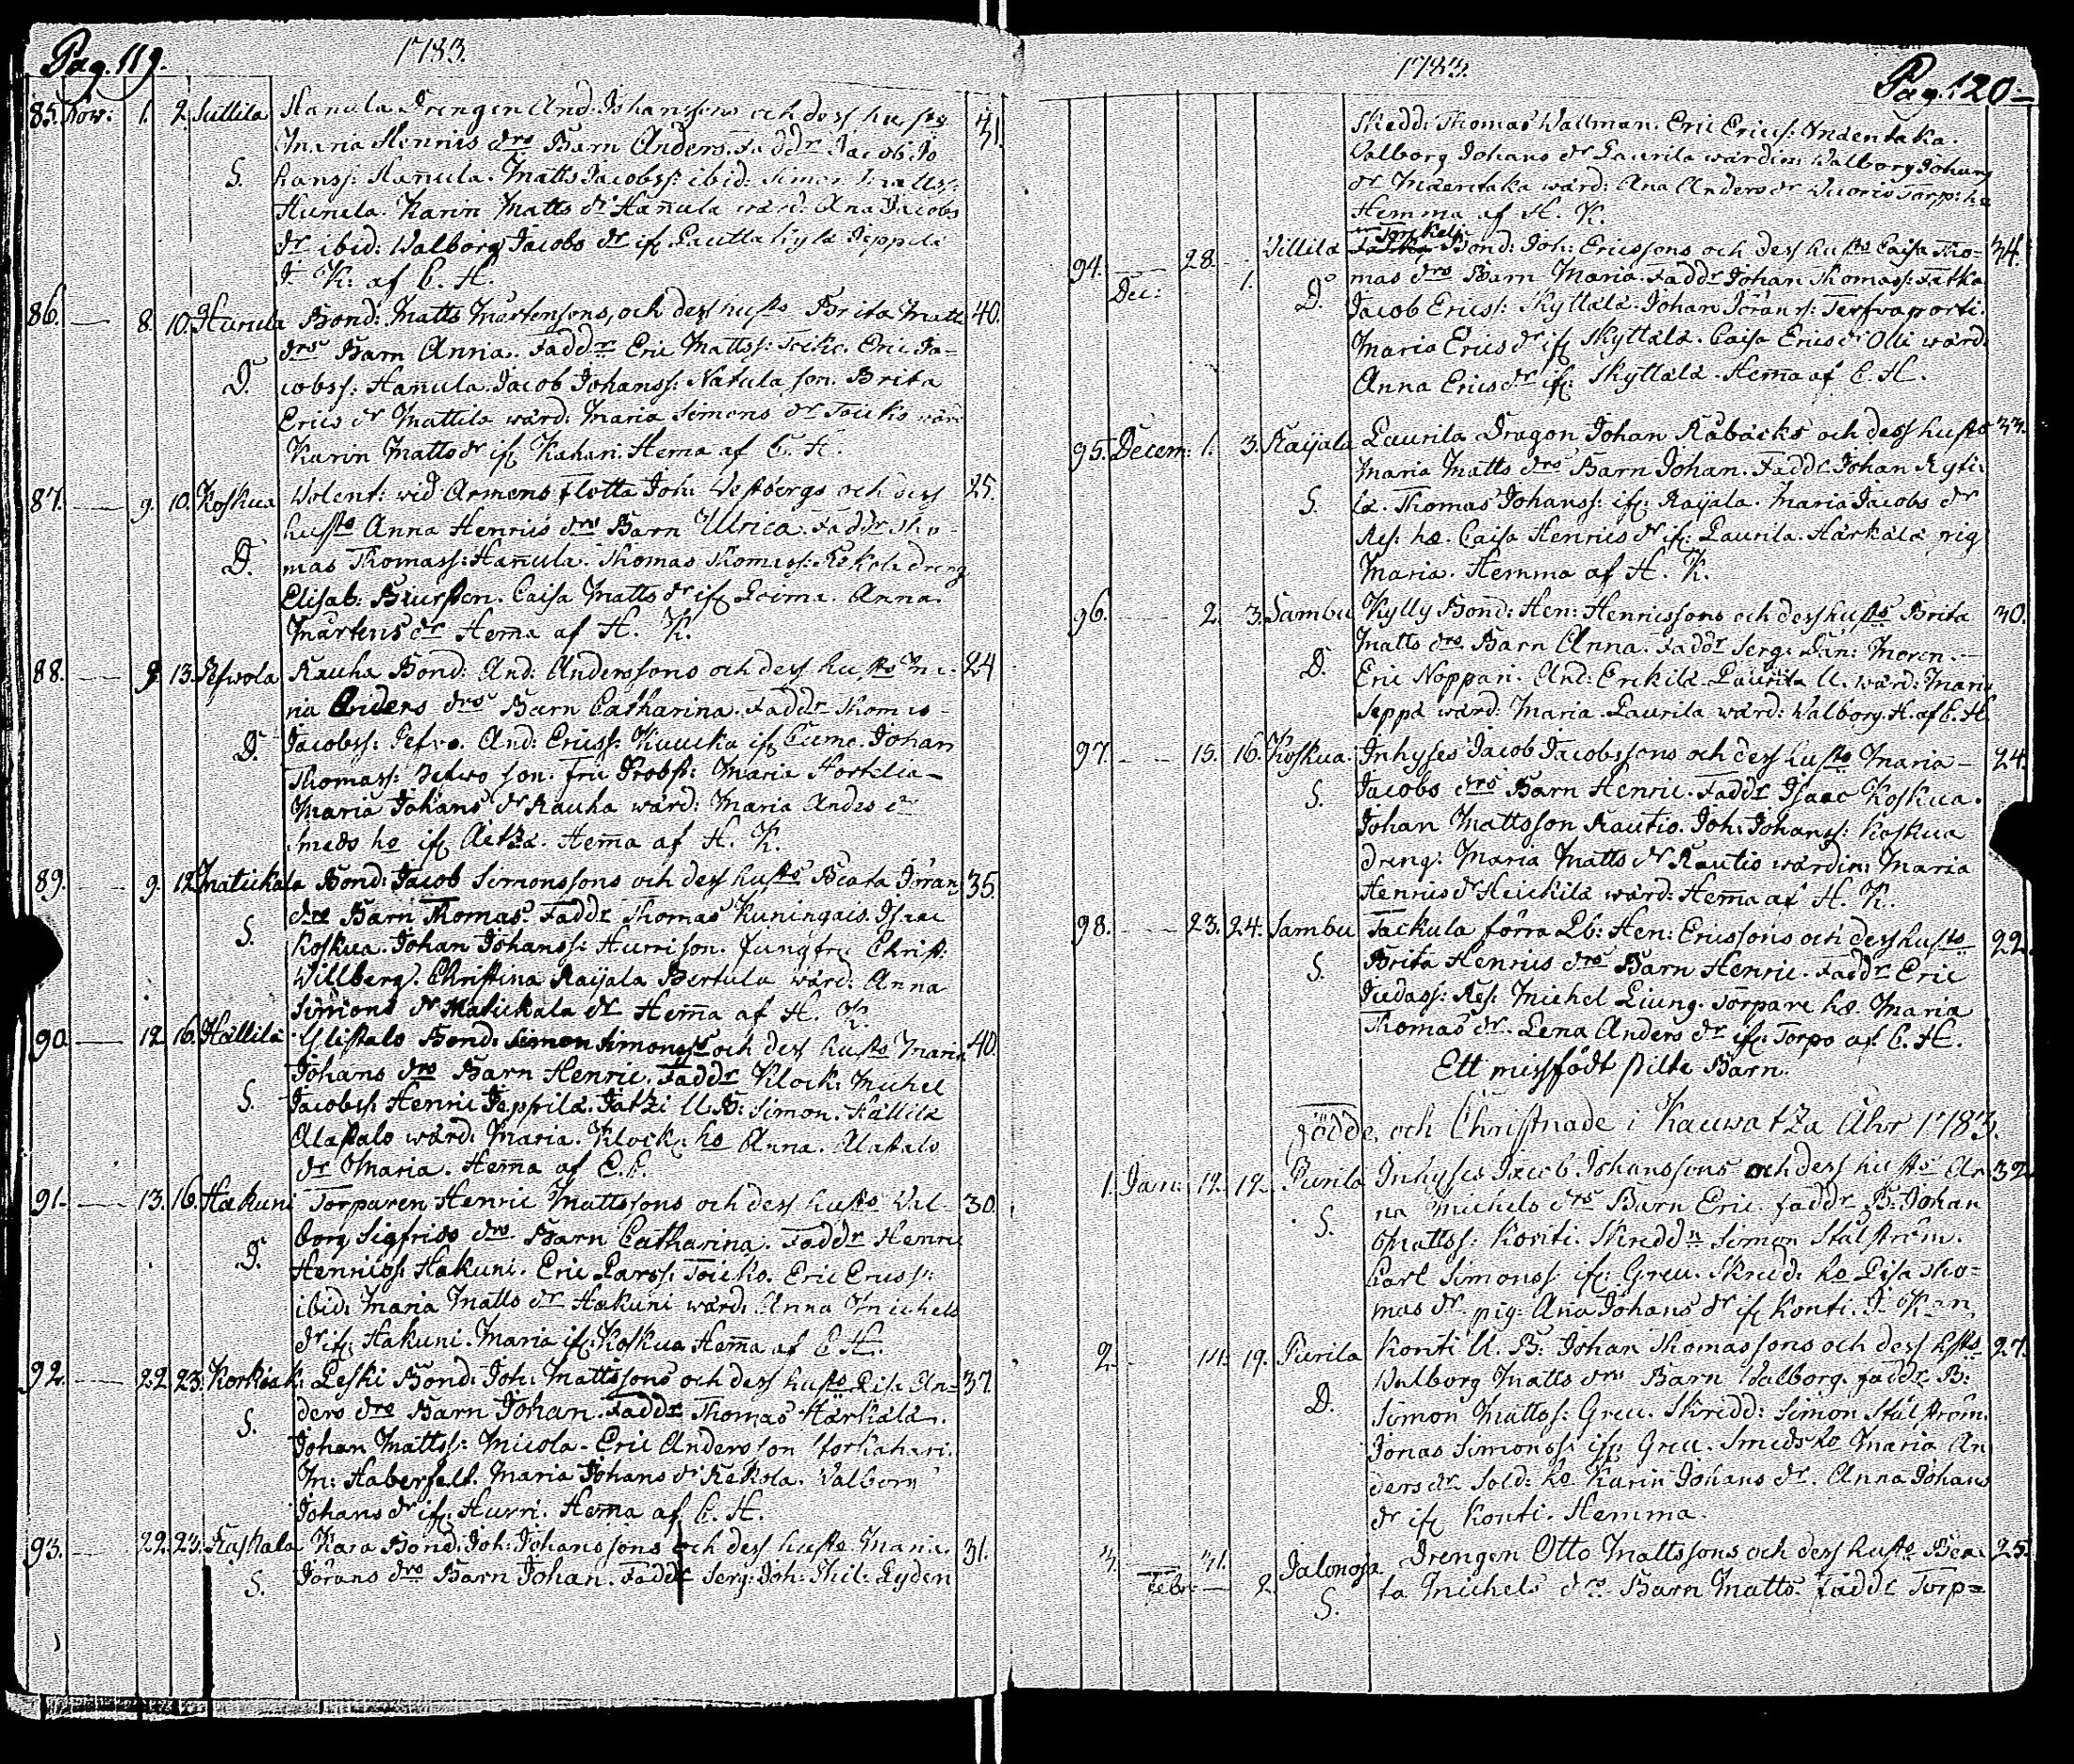 Pag. 119.
1783.
85. Nov: 1. 2. Suttila Hanula Drengen And: Johanssons och dess hustro 31.
Maria Henrics drs Barn Anders. Faddr Jacob Jo
S. hanss: Hanula. Matts Jacobss: ibid: Simon Mattss:
Hunela. Karin Matts dr Hanula wärd: Ana Jacobs
dr ibid: Walborg Jacobs dr if
K. af C. H.
86. 8. 10. Hunela Bond: Matts Mårtenssons, och dess husto Brita Matts 40.
drs Barn Anna. Faddr Eric Mattss: Toiko. Eric Ja-
D. cobss: Hanula. Jacob Johanss: Natula son. Brita
Erics dr Mattila wärd: Maria Simons dr Toiko wärd
Karin Matts dr if Kahari. Hema af C. H.
87. 9. 10. Koskua Volent: wid Armens Flotta Joh: Westbergs och dess 25.
husto Anna Henrics drs Barn Ulrica. Faddr Tho-
D. mas Thomass: Hanula. Thomas Thomass: Kekola dreng
Elisab: Caisa Matts dr if Loima. Anna
Mårtens dr Hema af H. K.
88. 9. 13. Sefwola Rauha Bond: And: Anderssons och dess husto Ma- 24
ria Anders drs Barn Catharina. Faddr Thomas
D. Jacobss: And: Ericss: if Johan
Thomass: son. Fru Probst: Maria Hortelia
Maria Johans dr Rauha wärd: Maria Anders dr
smeds ho if Aetzä. Hema af H. K.
89. 9. 12. Matickala Bond: Jacob Simonssons och dess husto Beata Jörans 35.
drs Barn Thomas. Faddr Thomas Kuningais. Isaac
S. Koskua. Johan Johanss: Hurri son. Jungfru Christ:
Willberg. Christina Raijala Bertula wärd: Anna
Simons dr Matickala dr Hema af H. K.
90. 12. 16. Hällilä Ylistalo Bond: Simon Simonss och dess husto Maria 40.
Johans drs Barn Henric. Faddr Klock: Michel
S. Jacobss: Henric Jeppilä. Jatzi U. B: Simon. Hällilä
Alastalo wärd: Maria. Klock: ho Anna. Alastalo
dr Maria. Hema af C. H.
91. 13. 16. Hakuni Torparen Henric Mattssons och dess husto Wal- 30.
borg Sigfrids drs Barn Catharina. Faddr Henric
D. Henricss: Hakuni. Eric Larss: Toicko. Eric Ericss:
ibid: Maria Matts dr Hakuni wärd: Anna Michels
dr if Hakuni. Maria if Koskua Hema af C. H.
92. 22. 23. Korkiak: Leski Bond: Joh: Mattssons och dess husto Lisa An- 37.
ders drs Barn Johan. Faddr Thomas Härkälä.
S. Johan Mattss: Micola. Eric Andersson Storkahari.
M: Haberfelt. Maria Johans dr Kekola. Walborg
Johans dr if Hurri. Hema af C. H.
93. 22. 23. Kaskala Kara Bond: Joh: Johanssons och dess husto Maria 31.
S. Jörans drs Barn Johan. Faddr Serg: Joh: Phil: Lyden
1783.
Pag. 120.
Skedd: Thomas Wallman. Eric Ericss: Inäentaka.
Walborg Johans dr Laurila wärdin: Walborg Johans
dr Inäentaka wärd: Ana Anders dr Wuoris Torp: ho
Hemma af H. K.
94. Dec: 28. 1. Villilä Bond: Joh: Ericssons och dess husto Caisa Tho- 34.
D. mas drs Barn Maria. Faddr Johan Thomass: Tatka
Jacob Ericss: Skyttälä. Johan Jöranss:
Maria Erics dr if Skyttälä. Caisa Erics dr Olli wärd:
Anna Erics dr if: Skyttälä. Hema af C. H.
95. Decem: 1. 3. Raijala Laurila Dragon Johan Råbäcks och dess husto 33.
Maria Matts drs Barn Johan. Faddr Johan Kyti
S. lä. Thomas Johanss: if: Raijala. Maria Jacobs dr
Res: ho. Caisa Henrics dr if: Laurila. Härkälä pig
Maria. Hemma af H. K.
96. 2. 3. Sambu Kylly Bond: Hen: Henricssons och dess husto Brita 30.
Matts drs Barn Anna. Faddr Serg: Dan: Moren
D. Eric Noppari. And: Erckilä. Laurila U. wärd: Maria
Seppä wärd: Maria. Laurila wärd: Walborg. H. af C. H.
97. 15. 16. Koskua. Inhyses Jacob Jacobssons och dess husto Maria 24.
S. Jacobs drs Barn Henric. Faddr Isaac Koskua.
Johan Mattsson Rautio. Joh: Johanss: Koskua
dreng: Maria Matts dr Rautio wärdin: Maria
Henrics dr Heickilä wärd: Hema af H. K.
98. 23. 24. Sambu Tackula förra Lb: Hen: Ericssons och dess husto 22.
S. Brita Henrics drs Barn Henric. Faddr Eric
Judass: Res: Michel Liung. Torpare ho Maria
Thomas dr. Lena Anders dr if: Torpo af C. H.
Ett missfödt pilte Barn.
Födde, och Christnade i Kauwatza Åhr 1783.
1. Jan: 12. 12. Purila Inhyses Jacob Johanssons och dess husto An 32
na Michels drs Barn Eric. Faddr B: Johan
S. Mattss: Konti. Skreddn Simon Stålström.
Carl Simonss: if: Greu. Skredd: ho Lisa Tho-
mas dr. pig: Ana Johans dr if Konti.
2. 14. 19. Purila Konti U. B: Johan Thomassons och dess husto 27.
Walborg Matts drs Barn Walborg. Faddr B:
D. Simon Mattss: Greu. Skredd: Simon Stålström.
Jonas Simonss: if: Greu. Smeds ho Maria An
ders dr Sold: ho Karin Johans dr. Anna Johans
dr if Konti. Hemma.
3. Febr: 31. 2. Jalonoja Drengen Otto Mattssons och dess husto Bea- 25.
S. ta Michels drs Barn Matts. Faddr Torp=